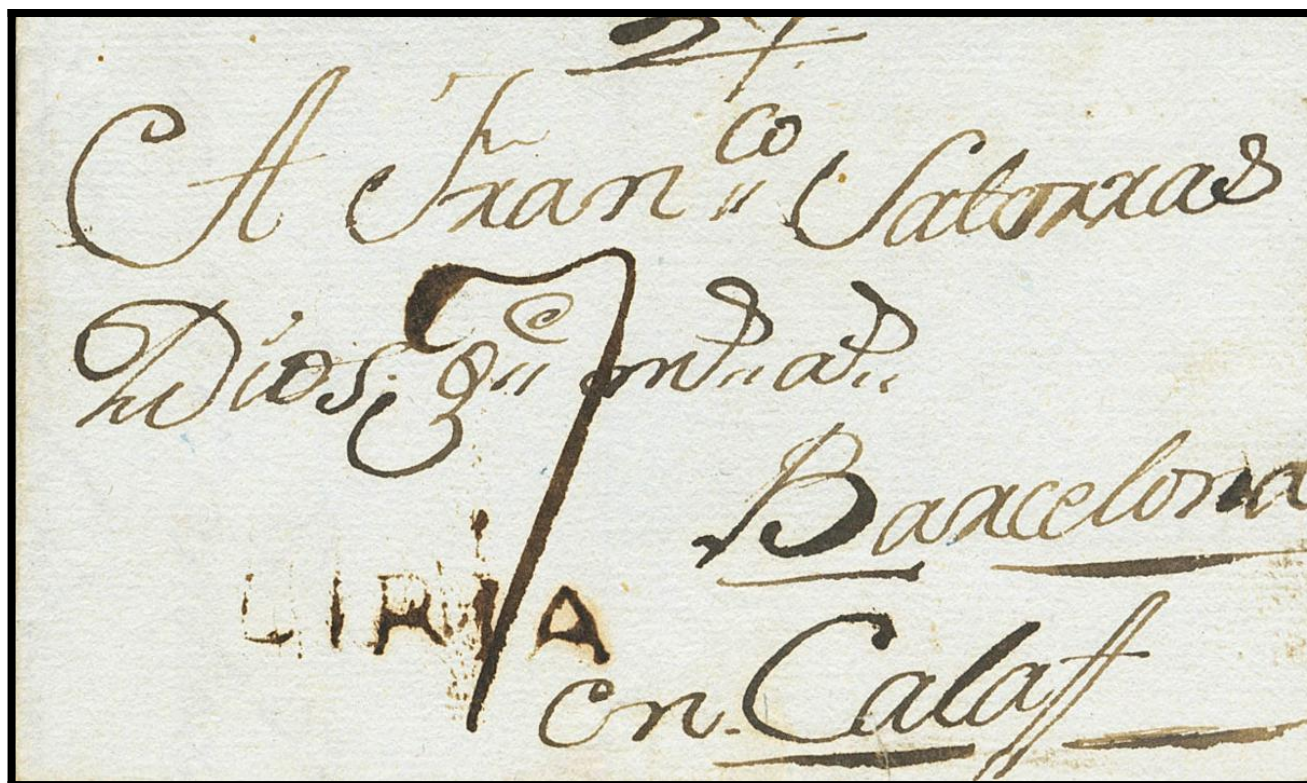 A Fran.co Satorras
Dios g.e m.s a.s
Barcelona
LIRIA
en Calaff